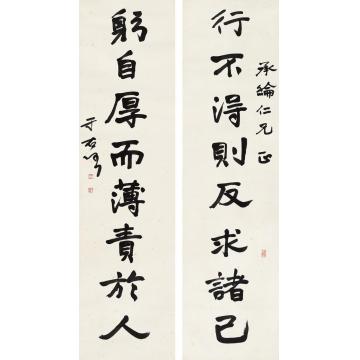 行不得則反求諸己
承綸仁兄正
躬自厚而薄責於人
于右任